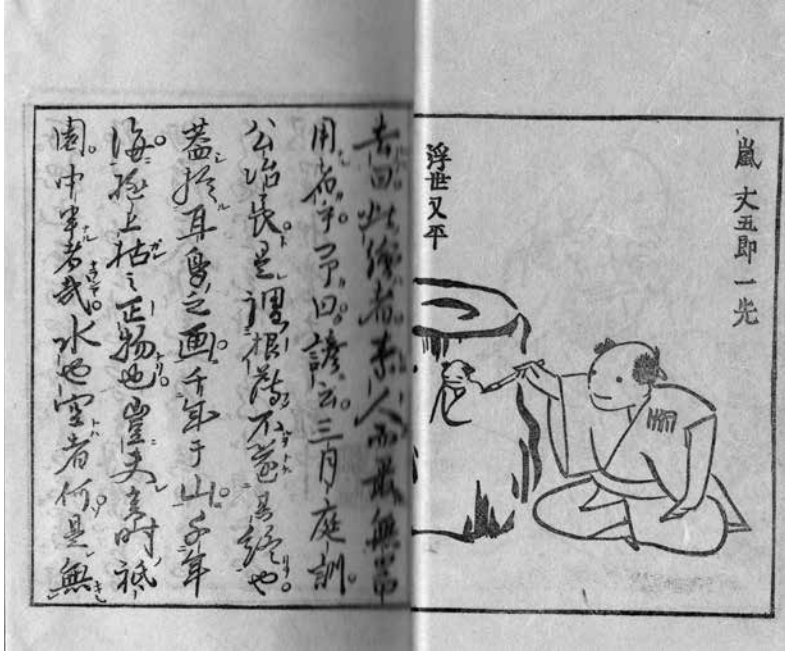 嵐 丈五郎一先
浮世又平
曰此繪者素人而最無常
用者乎予曰諺云三月庭訓
公冶長是謂根薄不也
蓋於耳鳥之画千年于山千年
海極上枯之正物也豈夫時祇
園中半者哉水也空者何是無